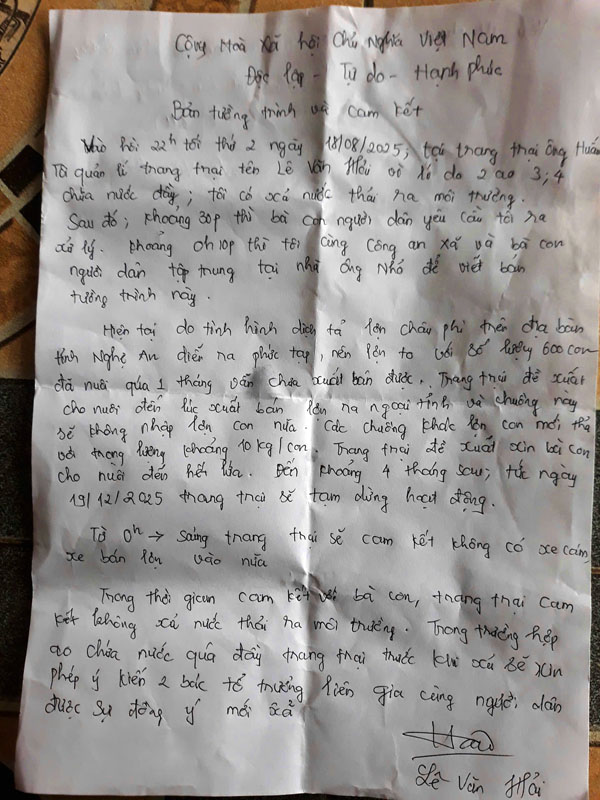 Cộng Hoà Xã hội Chủ Nghĩa Việt Nam
Độc lập - Tự do - Hạnh phúc
Bản tường trình và cam kết
Vào hồi 22h tối thứ 2 ngày 18/08/2025; tại trang trại ông Huấn
Tôi quản lí trang trại tên Lê Văn Hải vì lí do 2 ao 3; 4
chứa nước đầy; tôi có xả nước thải ra môi trường.
Sau đó; khoảng 30p thì bà con người dân yêu cầu tôi ra
xử lý. Khoảng 0h10p thì tôi cùng công an xã và bà con
người dân tập trung tại nhà ông Nhỏ để viết bản
tường trình này.
Hiện tại do tình hình dịch tả lợn châu phi trên địa bàn
tỉnh Nghệ An diễn ra phức tạp, nên lợn to với số lượng 600 con
đã nuôi quá 1 tháng vẫn chưa xuất bán được. Trang trại đề xuất
cho nuôi đến lúc xuất bán lợn ra ngoài tỉnh và chuồng này
sẽ không nhập lợn con nữa. Các chuồng khác lợn con mới thả
với trọng lượng khoảng 10 kg/con. Trang trại đề xuất xin bà con
cho nuôi đến hết lứa. Đến khoảng 4 tháng sau; tức ngày
19/12/2025 trang trại sẽ tạm dừng hoạt động.
Từ 0h → sáng trang trại sẽ cam kết không có xe cám,
xe bán lợn vào nữa
Trong thời gian cam kết với bà con, trang trại cam
kết không xả nước thải ra môi trường. Trong trường hợp
ao chứa nước quá đầy trang trại trước khi xả sẽ xin
phép ý kiến 2 bác tổ trưởng liên gia cùng người dân
được sự đồng ý mới xả
Lê Văn Hải